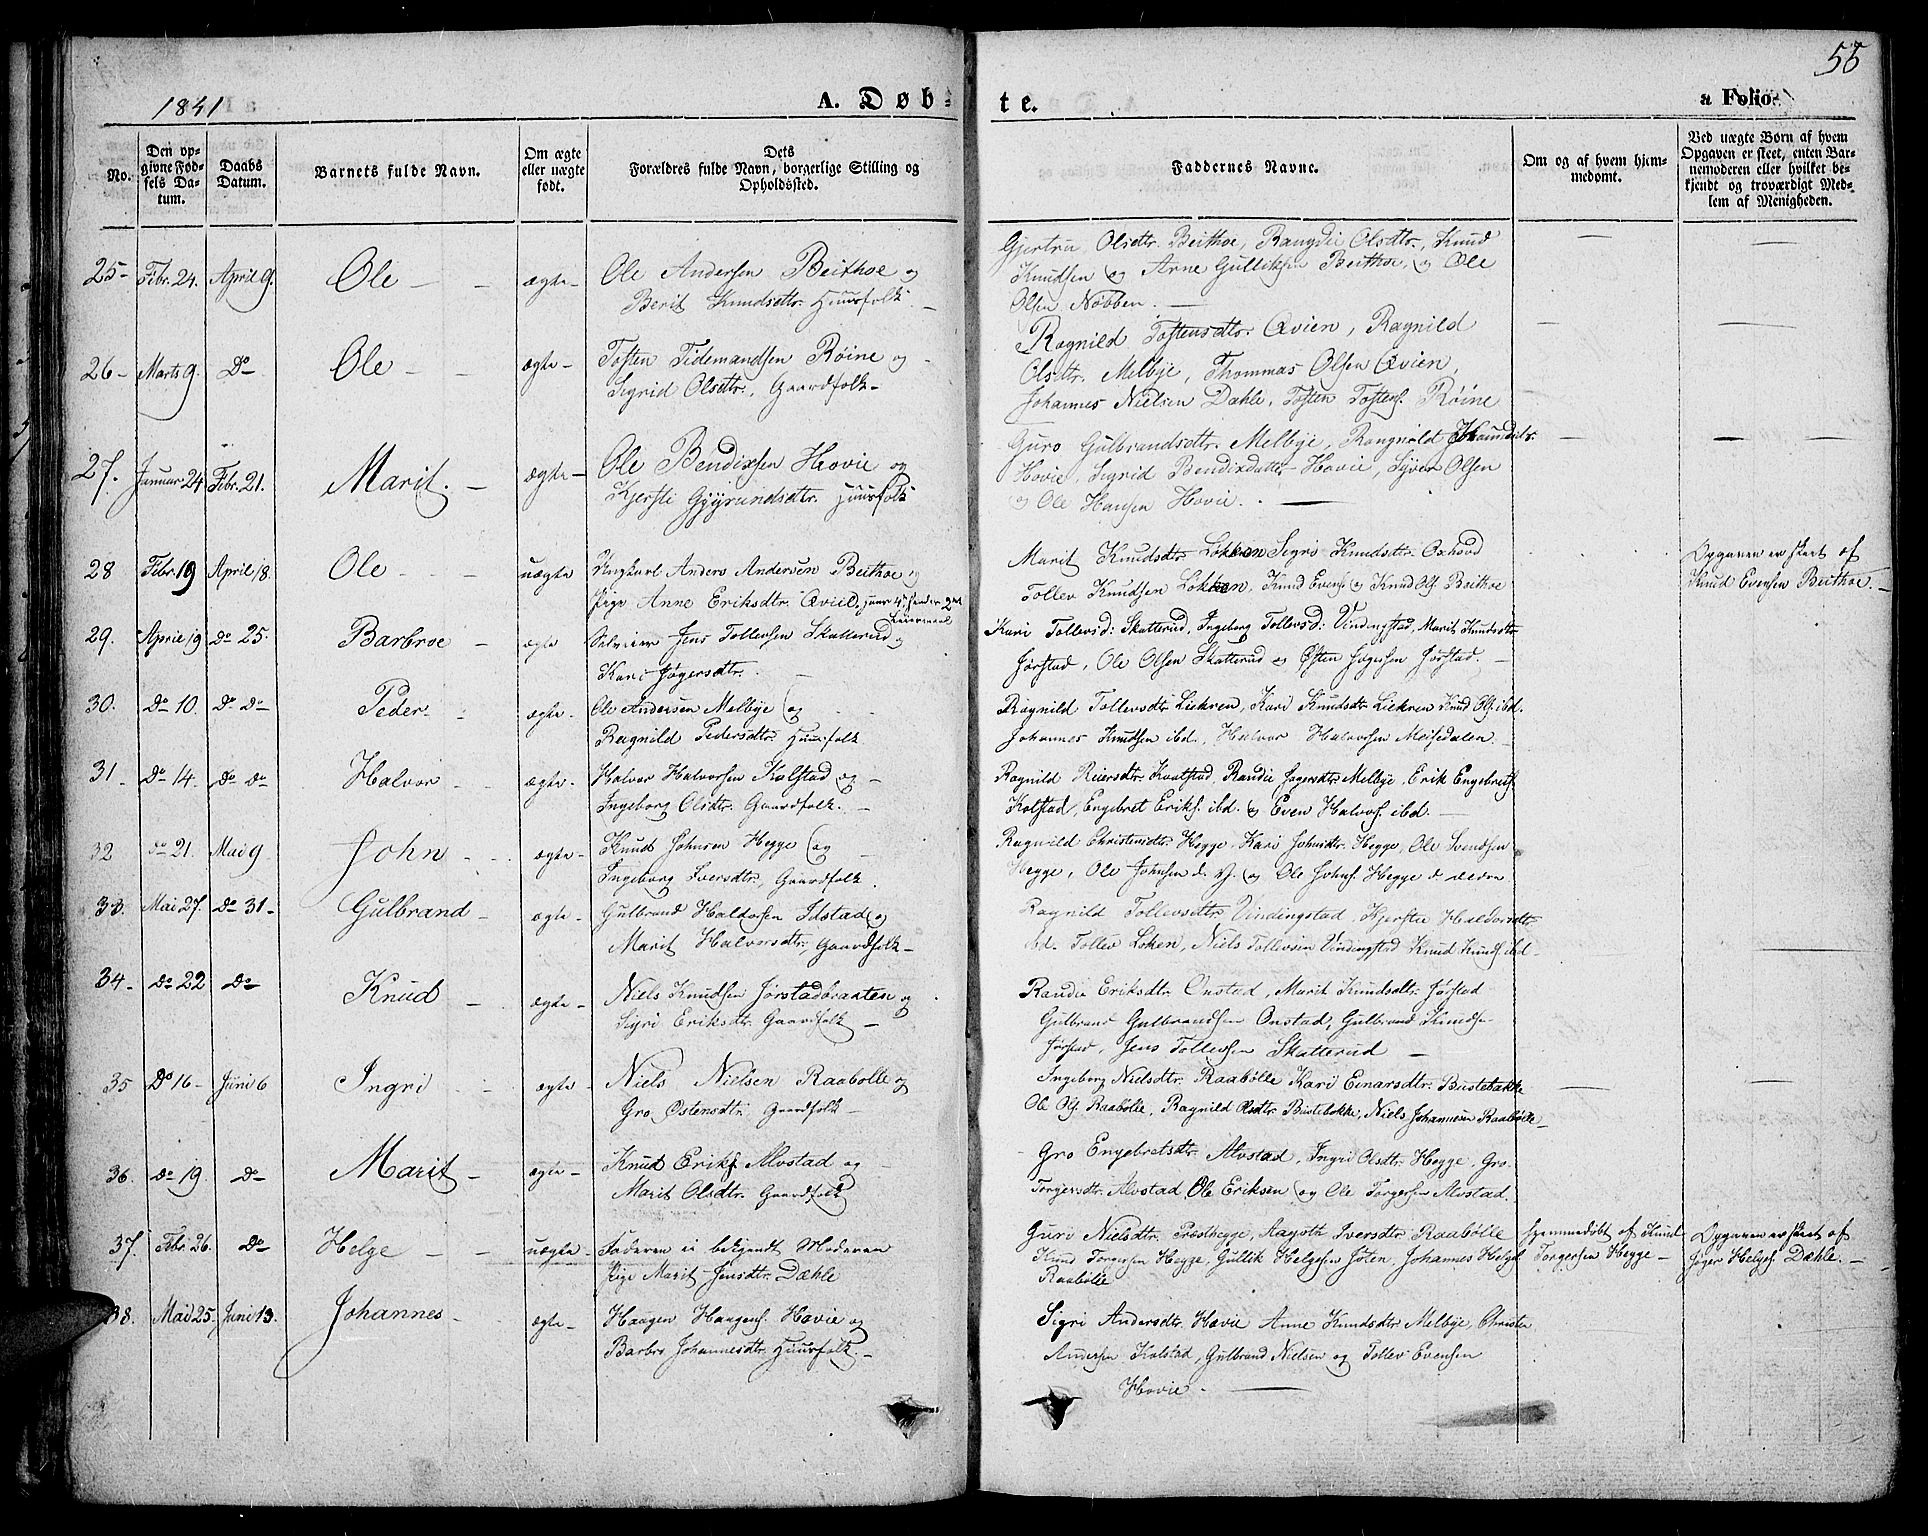 1841
A. Døb-
te.
a Folio
55
No.
Den op-
givne Fød-
sels Da-
tum.
Daabs
Datum.
Barnets fulde Navn.
Om ægte
eller uægte
født.
Dets
Forældres fulde Navn, borgerlige Stilling og
Opholdssted.
Faddernes Navne.
Om og af hvem hjem-
medømt.
Ved uægte Børn af hvem
Opgaven er skeet, enten Bar-
nemoderen eller hvilket be-
kjendt og troværdigt Med-
lem af Menigheden.
25- Febr. 24. April 9. Ole - - ægte-
Ole Andersen Beithoe og
Berit Knudsdtr. Huusfolk. -
Gjertru Olsdtr. Beithoe, Rangdi Olsdtr., Knud
Knudsen og Arne Gulliksen Beithoe, og Ole
Olsen Nøbben. -
26- Marts 9. Do- Ole - - ægte-
Tosten Tidemandsen Røine og -
Sigrid Olsdtr., Gaardfolk-
Ragnild Tostensdtr. Qvien, Ragnild
Olsdtr. Melbye, Thommas Olsen Qvien,
Johannes Nielsen Dæhle, Tosten Tostens. Røine
27. Januar 24 Febr. 21. Marit. - ægte-
Ole Bendixsen Hovie og
Kjersti Gyyrundsdtr. Huusfolk
Guro Gulbrandsdtr. Melbye, Rangnild
Hovie, Sigrid Bendixdatter Hovie, Syver Olsen
og Ole Hansen Hovie. -
28 Febr. 19 April 18. Ole - - uægte
Ungkarl Anders Andersen Beithoe og
Pige Anne Eriksdtr. Qviel,
Marit Knudsdtr Løkken Sigri Knudsdtr. Oxhovd
Tollev Knudsen Løkken, Knud Evens. og Knud Ols. Beithoe
Opgaven er skeet af
Knud Evensen Beithoe. -
29. April 9 Do 25. Barbroe - ægte
Selveier Jens Tollevsen Skatterud og
Kari Jøgersdtr. -
Kari Tollevsd: Skatterud, Ingeborg Tollevsd: Vindingstad, Marit Knudsdtr
Jørstad, Ole Olsen Skatterud og Østen Jøgersen Jørstad. -
30. Do 10. Do Do Peder - ægte-
Ole Andersen Melbye og - -
Ragnild Pedersdtr. Huusfolk
Ragnild Tollevsdtr Liekren, Kari Knudsdtr Liekren Knud Ols. ibd.
Johannes Knudsen ibd., Halvor Halvorsen Meisedalen. -
31. Do 14. Do Do Halvor - - ægte-
Halvor Halvorsen Kolstad og -
Ingeborg Olsdtr. Gaardfolk. -
Ragnild Reiersdtr. Kolstad, Randie Jøgersdtr. Melbye, Erik Engebrets.
Kolstad, Engebret Eriks. ibd. og Even Halvors. ibd. -
32 do 21. Mai 9 John - - ægte-
Knud Johnsen Hegge og -
Ingeborg Iversdtr., Gaardfolk.
Ragnild Christensdtr. Hegge, Kari Johnsdtr. Hegge, Ole Svendsen
Hegge, Ole Johnsen d. y. og Ole Johns. Hegge d. ældre
33. Mai 27. Do 31- Gulbrand - ægte-
Gulbrand Haldorsen Idstad og
Marit Halvorsdtr, Gaardfolk-
Ragnild Tollevsdtr Vindingstad, Kjerstie Haldorsdtr
ibd. Tollev Loken, Niels Tollevsen Vindingstad Knud Knuds. ibd.
34- Do 22 Do Knud - ægte-
Niels Knudsen Jørstadbraaten og
Sigri Eriksdtr Gaardfolk -
Randie Eriksdtr Onstad, Marit Knudsdtr. Jørstad
Gulbrand Gulbrandsen Onstad, Gulbrand Knudsen
Jørstad, Jens Tollevsen Skatterud -
35 Do 16- Juni 6 Ingri - ægte-
Niels Nielsen Raabølle og
Gro Østensdtr. Gaardfolk -
Ingeborg Nielsdtr. Raabølle Kari Einarsdtr. Bustebakke
Ole Ols. Raabølle, Ragnild Olsdtr. Bustebakke, Niels Johannesen Raabølle-
36. Do 19. Do Marit - ægte-
Knud Eriks. Alvstad og -
Marit Olsdtr. Gaardfolk
Gro Engebretsdtr. Alvstad, Ingri Olsdtr Hegge, Gro
Torgersdtr. Alvstad, Ole Eriksen og Ole Torgersen Alvstad.
37. Febr. 26. Do Helge - - uægte-
Faderen ei bekjendt Moderen
Pige Marit Jensdtr. Dæhle
Guri Nielsdtr. Præsthegge, Aagoth Iversdtr Raabølle
Knud Torgersen Hegge, Gullik Helgesen Joten, Johannes Helges.
Raabølle
Hjemmedøbt af Knud
Torgersen Hegge -
Opgaven er skeet af
Jøger Helges. Dæhle. -
38. Mai 25. Juni 13. Johannes - ægte-
Haagen Haagens. Hovie og
Barbro Johannesdtr Huusfolk. -
Sigri Andersdtr. Hovie Anne Knudsdtr Melbye, Christen
Andersen Kolstad, Gulbrand Nielsen og Tollev Evensen
Hovie. -